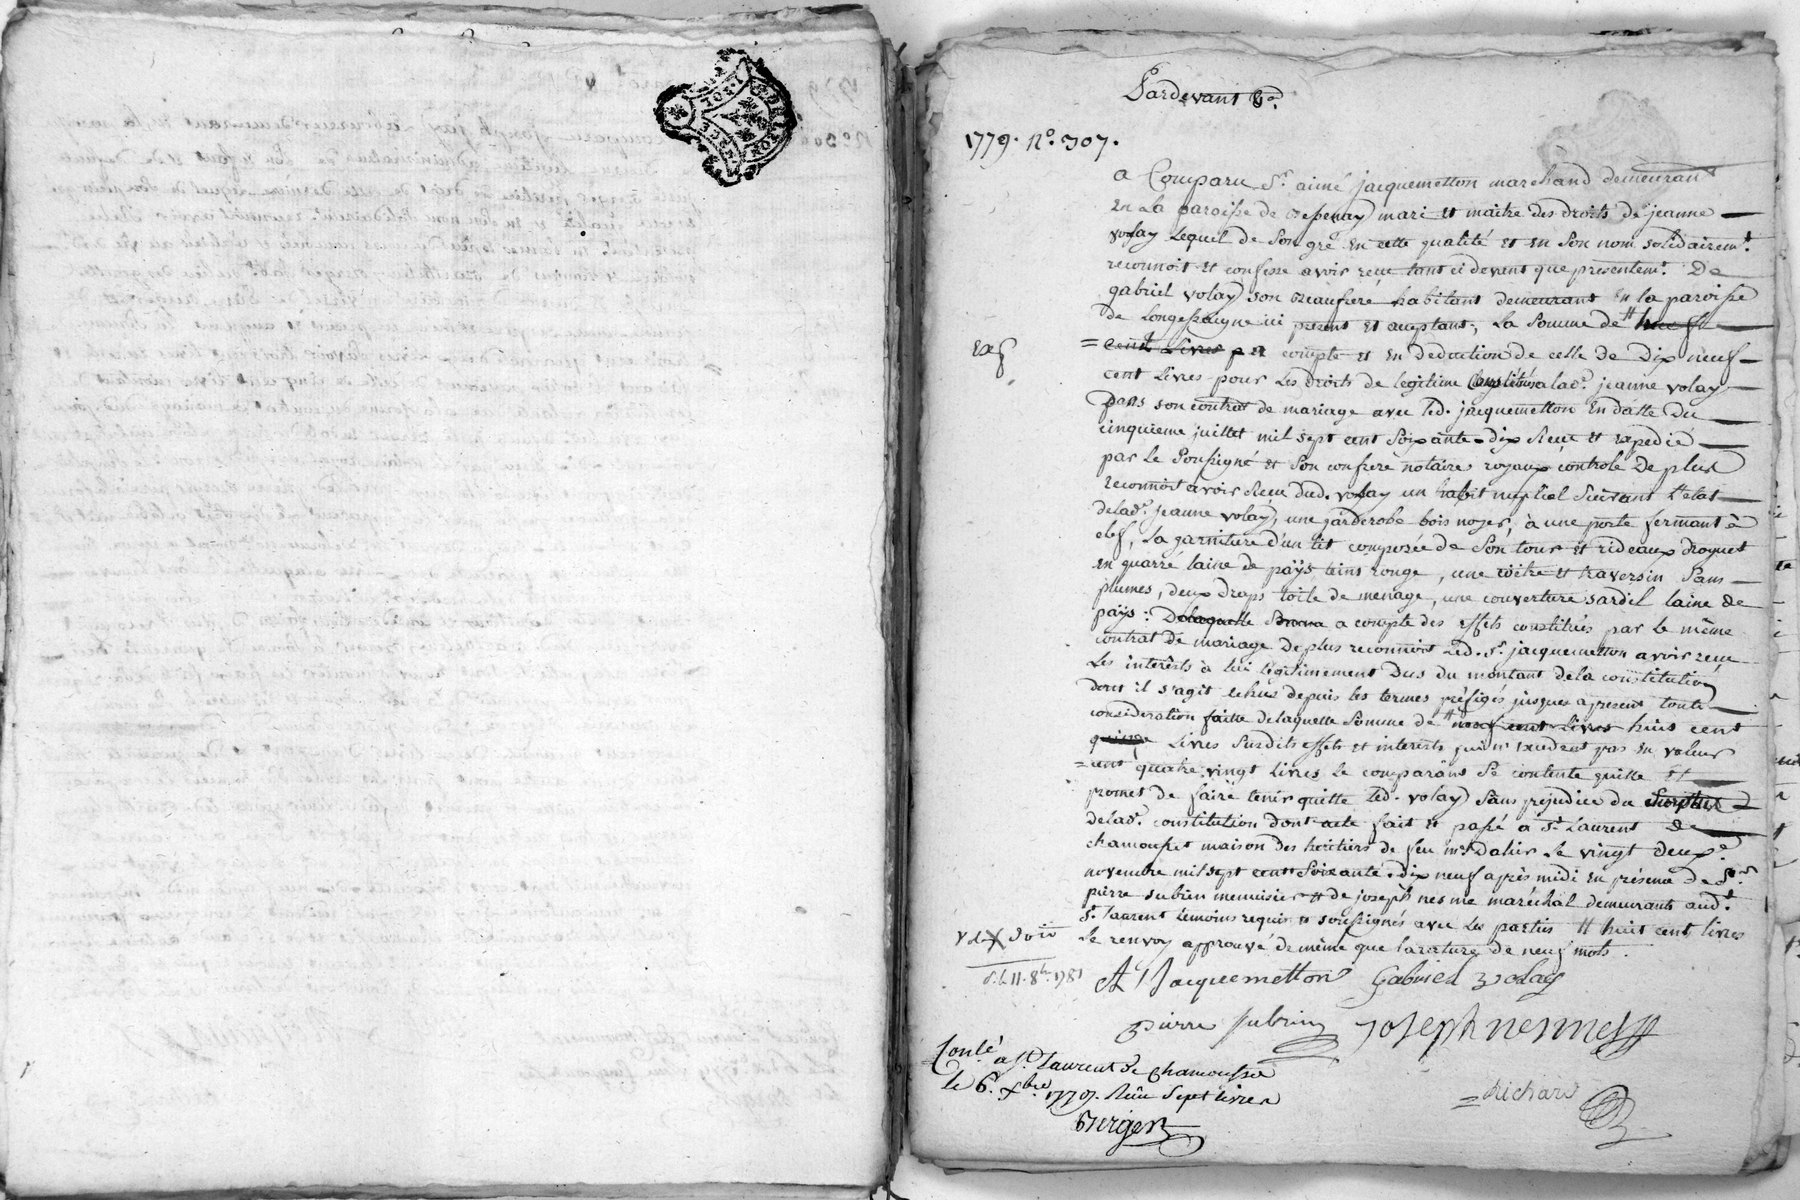 Pardevant &c.
1779. N.o 307.
a Comparu Sr. aimé jacquemetton marchand demeurant
En La paroisse de Bessenay mari et maitre des droits de jeanne
volay Lequel de Son gré en cette qualité et en Son nom solidairemt.
reconnoit et confesse avoir reçu tant ci devant que presentemt. De
gabriel volay son Beaufrere habitant demeurant En la paroisse
de Longessaigne ici present et aceptant, La Somme de # huit
cent Livres à compte et En deduction de celle de Dix neuf
cent Livres pour Les droits de legitime Constitués a lad. jeanne volay
dans son contrat de mariage avec led. jacquemetton En datte du
cinquieme juillet mil sept cent Soixante-dix Reçu et expedié
par le Soussigné et Son confrere notaires royaux controlé De plus
reconnoit avoir Reçu dud. volay un habit nuptial Suivant L'etat
delad. jeanne volay, une garderobe bois noyer, à une porte fermant à
clef, La garniture d'un lit composée de Son tour et rideaux droguet
en quarré laine de paÿs teint rouge, une coitre et traversin Sans
plumes, deux draps toile de menage, une couverture sardil laine de
paÿs : Delaquelle Somme a compte des effets constitués par le même
contrat de mariage De plus reconnoit Led. Sr. jacquemetton avoir reçu
Les interêts à lui legitimement Dus du montant de la constitution
dont il s'agit echus depuis les termes préfigés jusques apresent toute
consideration faitte delaquelle Somme de # neuf cent Livres huit cent
quinze Livres Susdits effets et interets qui n'excedent pas en valeur
cent quatre vingt Livres Le comparant Se contente quitte et
promet de faire tenir quitte led. volay Sans prejudice du
delad. constitution dont acte fait et passé à St. Laurent de
chamousset maison des heritiers de feu mr. Dalier Le vingt deuxe.
novembre mil sept cent Soixante-dix neuf après midi en présence de Srs.
pierre subrin menuisier et de joseph nesme maréchal demeurants aud.
St. laurent temoins requis et soussignés avec Les parties # huit cent livres
Le renvoy approuvé de même que la rature de neuf mots.
d. L. 11. 8bre 1781
A Jacquemetton Gabriel volay
pierre subrin joseph nesme
Conlé. a St. Laurent de chamousset
le 6. Xbre. 1779. Reçu Sept livres
Berger
Richard